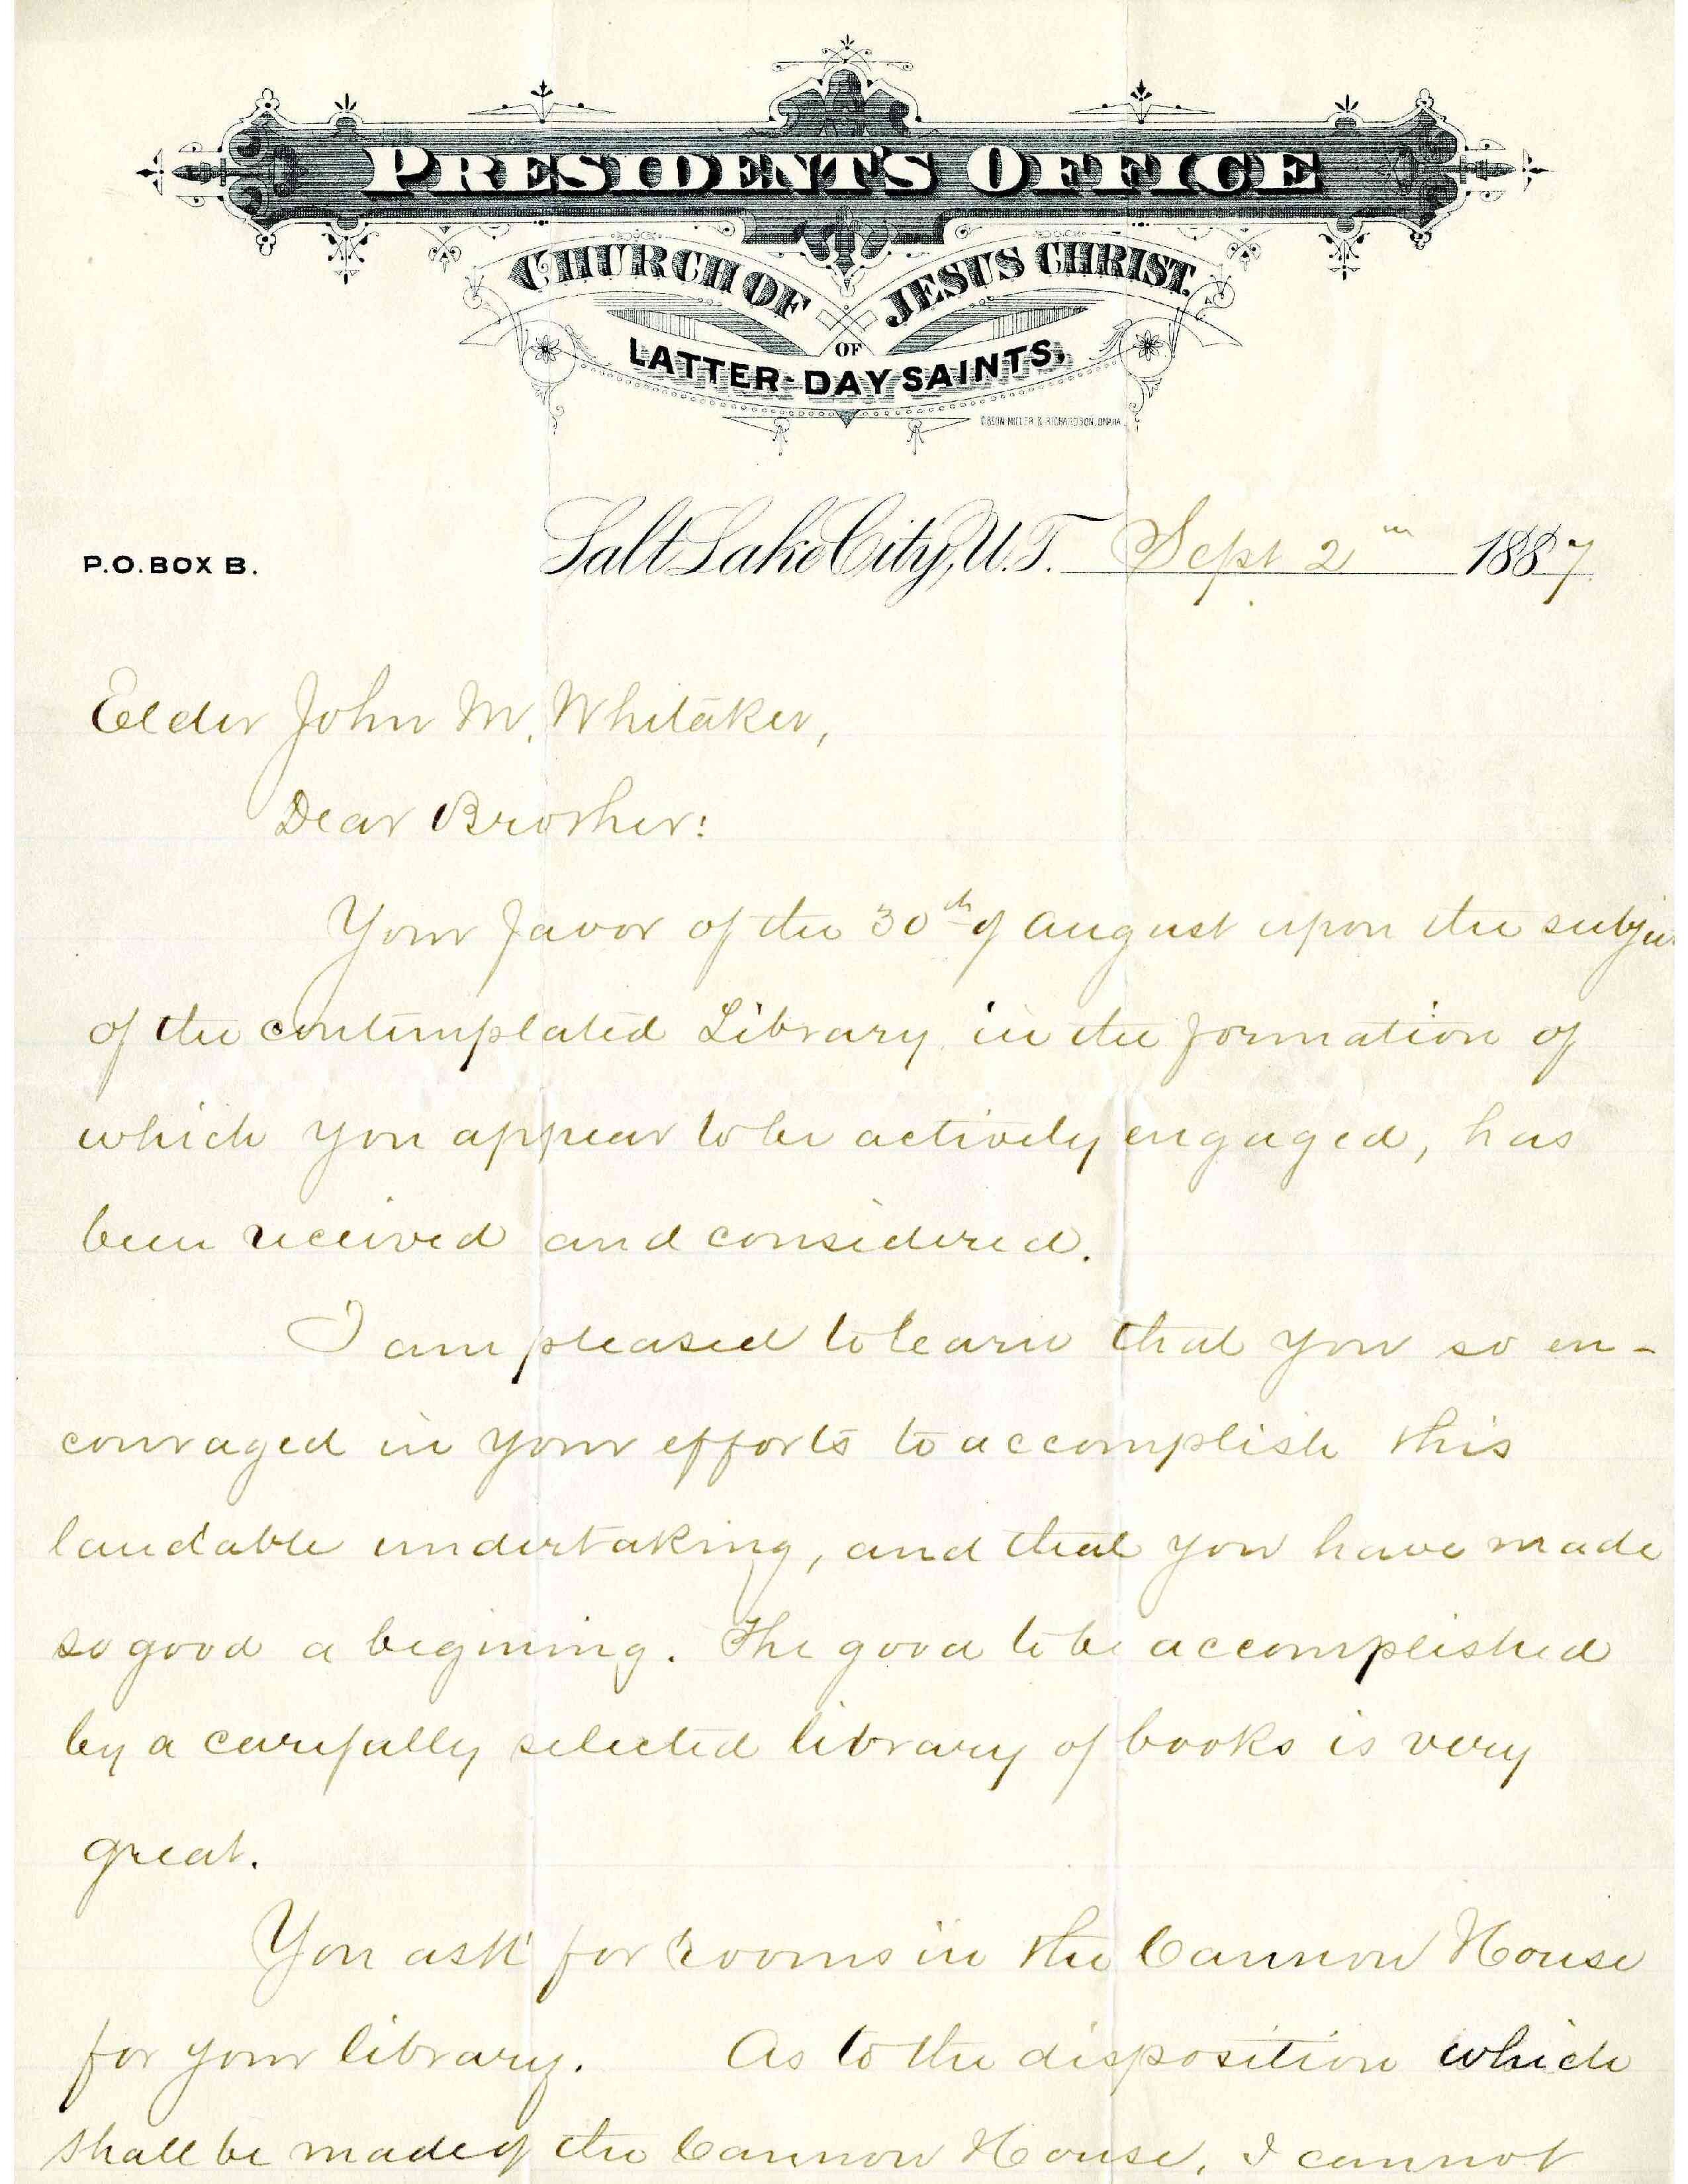 PRESIDENT'S OFFICE
CHURCH OF JESUS CHRIST.
OF
LATTER-DAY SAINTS,
GIBSON MILLER & RICHARDSON, OMAHA.
P.O. BOX B. Salt Lake City, U.T. Sept 2 1887
Elder John M. Whitaker,
Dear Brother:
Your favor of the 30th of August upon the subjec
of the contemplated Library in the formation of
which you appear to be actively engaged, has
been received and considered.
I am pleased to learn that you so en-
couraged in your efforts to accomplish this
laudable undertaking, and that you have made
so good a begining. The good to be accomplished
by a carefully selected library of books is very
great.
You ask for rooms in the Cannon House
for your library. As to the disposition which
shall be made of the Cannon House, I cannot